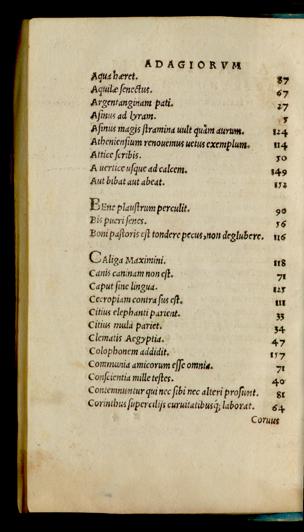 ADAGIORVM
Aqua hæret. 87
Aquilæ senectus. 67
Argentanginam pati. 27
Asinus ad lyram. 5
Asinus magis stramina uult quàm aurum. 124
Atheniensium renouemus uetus exemplum. 114
Attice scribis. 50
A uertice usque ad calcem. 149
Aut bibat aut abeat. 152
BEne plaustrum perculit. 90
Bis pueri senes. 56
Boni pastoris est tondere pecus, non deglubere. 116
CAliga Maximini. 118
Canis caninam non est. 71
Caput sine lingua. 125
Cecropiam contra sus est. 111
Citius elephanti parient. 33
Citius mula pariet. 34
Clematis Aegyptia. 47
Colophonem addidit. 157
Communia amicorum esse omnia. 71
Conscientia mille testes. 40
Contemnuntur qui nec sibi nec alteri prosunt. 81
Corinthus supercilijs curuitatibusq; laborat. 64
Coruus